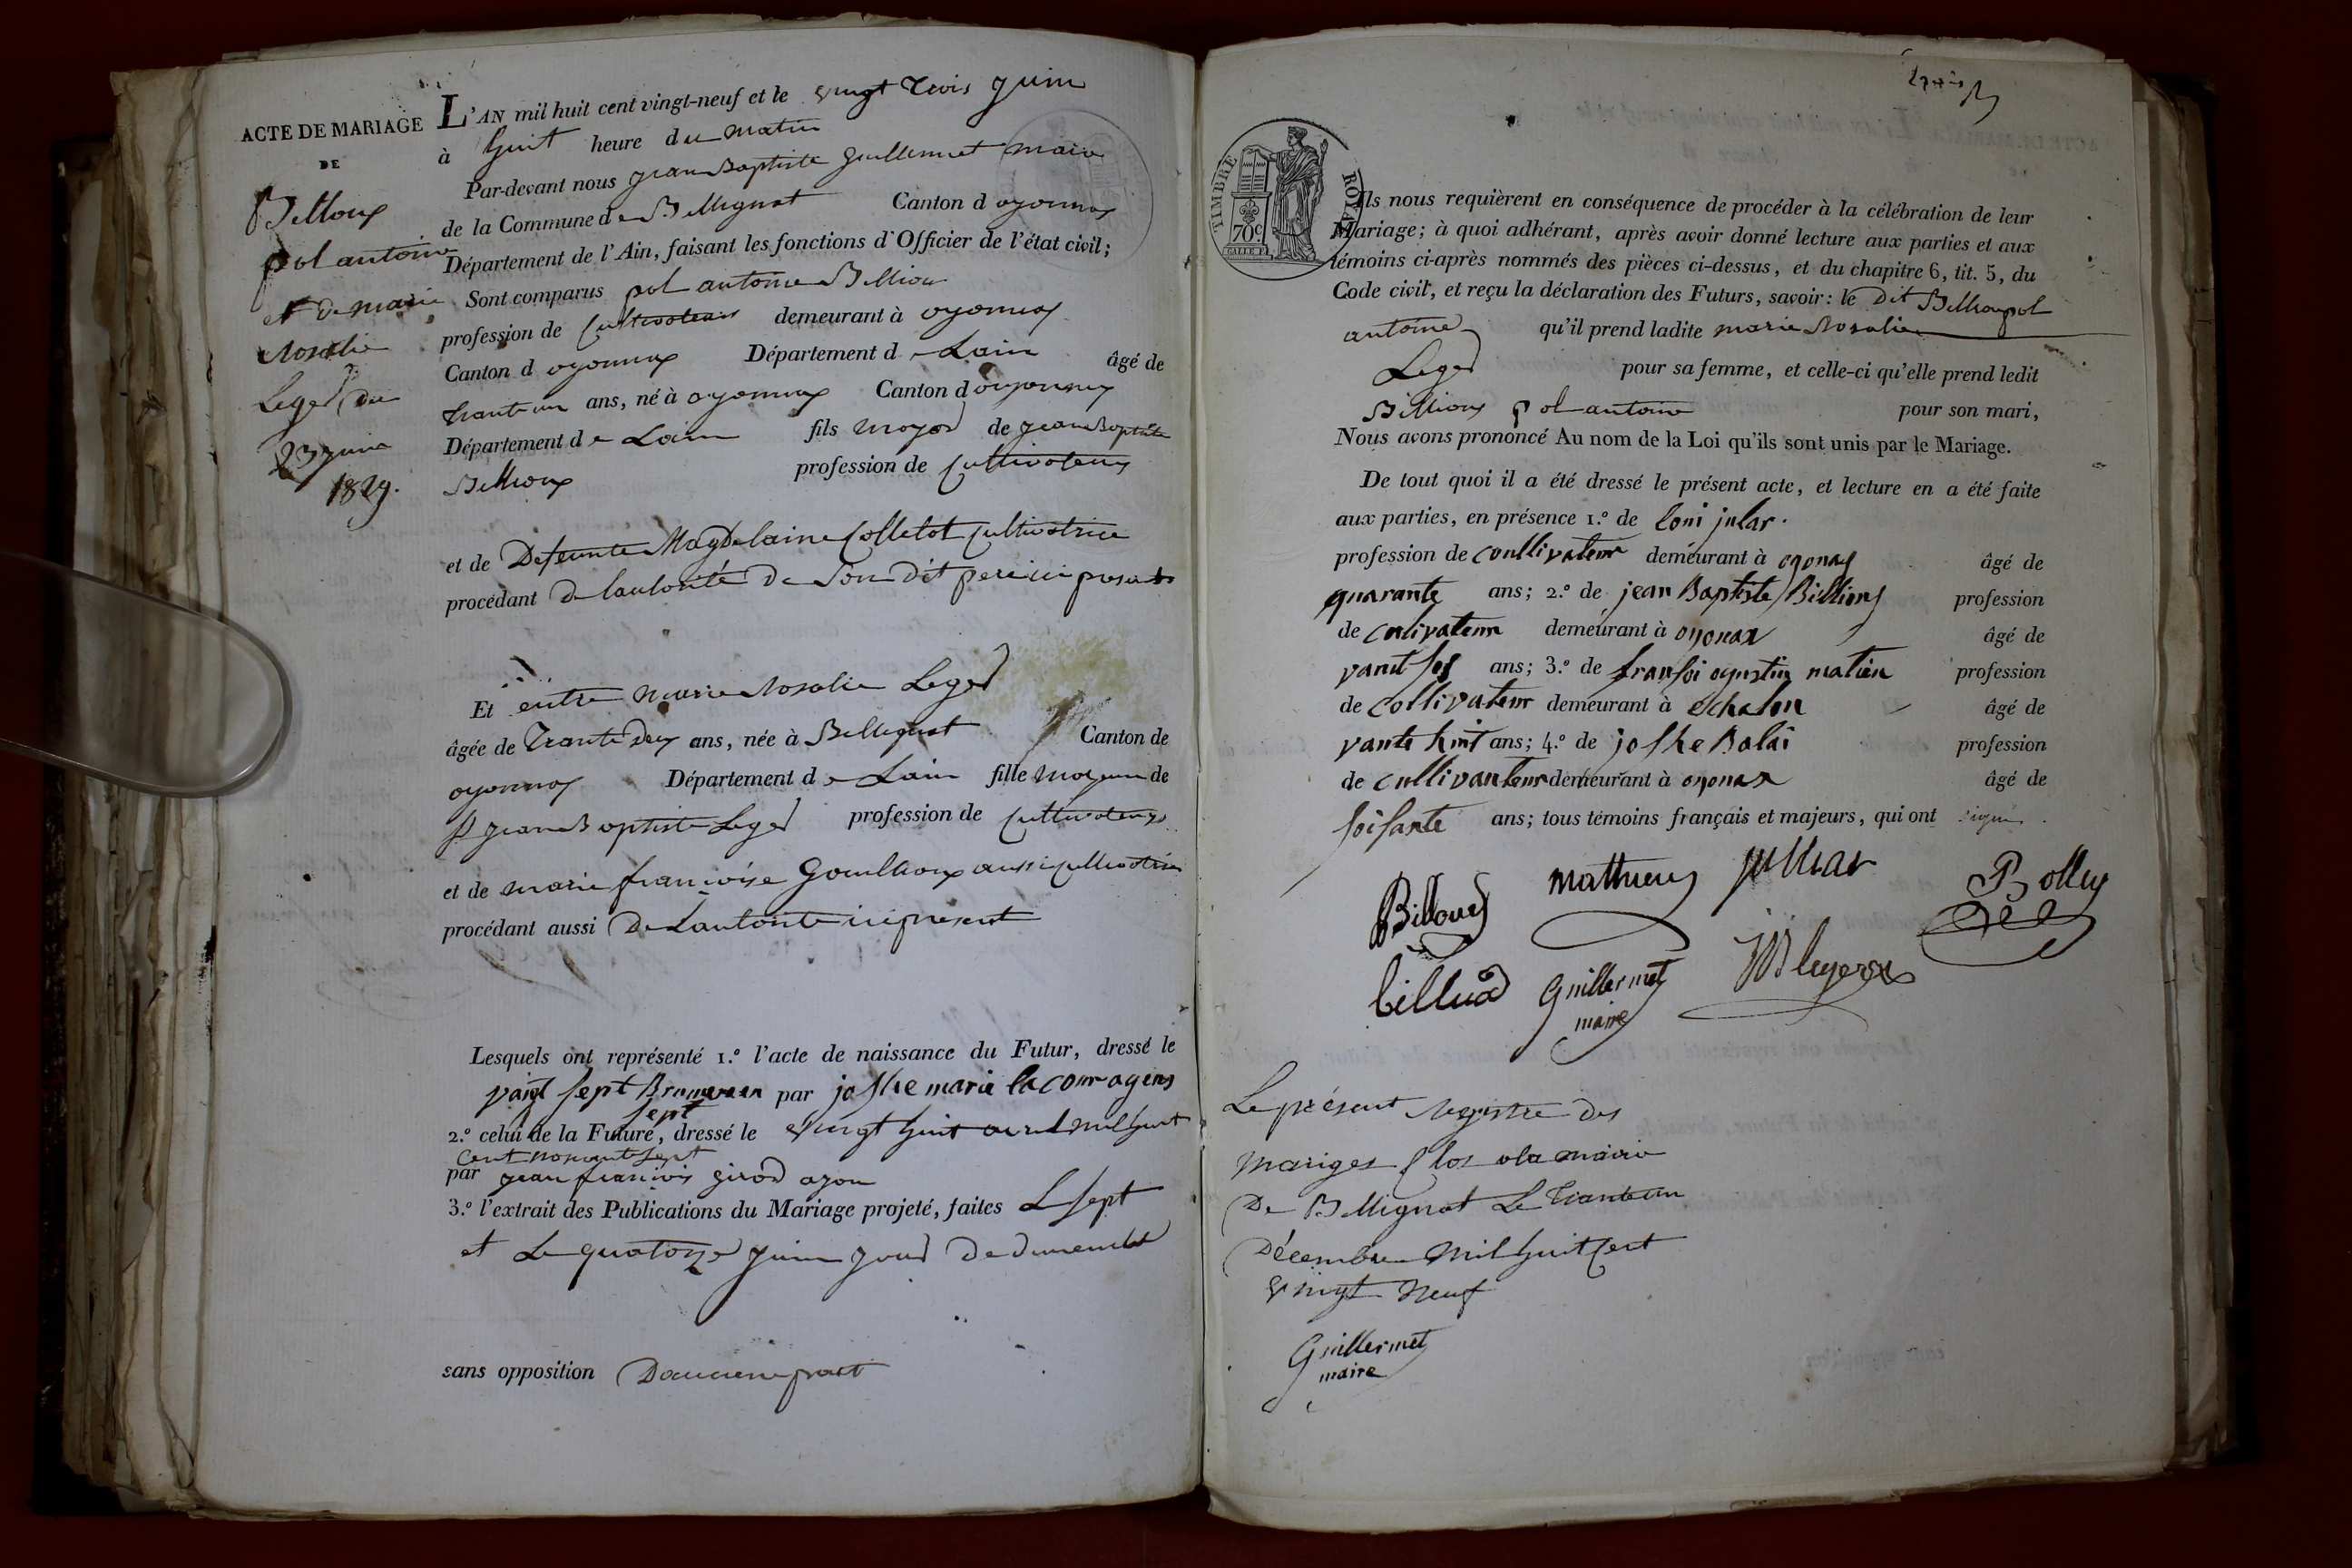 ACTE DE MARIAGE
DE
Billoux
pol antoine
et de marie
Rosalie
Leger du
23 juin
1829.
L'AN mil huit cent vingt-neuf et le vingt trois juin
à huit heure du matin
Par-devant nous jean Baptiste Guillermet maire
de la Commune de Bellignat Canton d oyonnax
Département de l'Ain, faisant les fonctions d'Officier de l'état civil;
Sont comparus pol antoine Billiou
profession de Cultivateur demeurant à oyonnax
Canton d oyonnax Département de Lain âgé de
trante un ans, né à oyonnax Canton d oyonnax
Département de Lain fils majeor de jean Baptiste
Billioux profession de Cultivateur
et de Defeunte Magdelaine Colletot Cultivatrice
procédant de lautorité de Son dit pere ici present
Et entre marie Rosalie Leger
âgée de trante deux ans, née à Bellignat Canton de
oyonnax Département de Lain fille majeure de
jean Baptiste Leger profession de Cultivateur
et de marie françoise Gouilloux aussi cultivatrice
procédant aussi De Lautorité ici present
Lesquels ont représenté 1.º l'acte de naissance du Futur, dressé le
vaigt sept Brumeren par joshe marie lacour agens
sept
2.º celui de la Future, dressé le vingt huit avril mil huit
Cent nonant sept
par jean françois girod ajon
3.º l'extrait des Publications du Mariage projeté, faites Le sept
et Le quatorze juin jour de dimenche
sans opposition Daucune part
TIMBRE ROYAL
70c
Ils nous requièrent en conséquence de procéder à la célébration de leur
Mariage; à quoi adhérant, après avoir donné lecture aux parties et aux
témoins ci-après nommés des pièces ci-dessus, et du chapitre 6, tit. 5, du
Code civil, et reçu la déclaration des Futurs, savoir: le dit Billioux pol
antoine qu'il prend ladite marie Rosalie
Leger pour sa femme, et celle-ci qu'elle prend ledit
Billioux pol antoine pour son mari,
Nous avons prononcé Au nom de la Loi qu'ils sont unis par le Mariage.
De tout quoi il a été dressé le présent acte, et lecture en a été faite
aux parties, en présence 1.º de loui jular.
profession de coullivateur demeurant à oyonax âgé de
quarante ans; 2.º de jean Baptiste Billioux profession
de culivateur demeurant à oyonax âgé de
ans; 3.º de fransoi ogustin matieu profession
de collivateur demeurant à echalon âgé de
vante huit ans; 4.º de joshe Balai profession
de cullivanteur demeurant à oyonax âgé de
soisante ans; tous témoins français et majeurs, qui ont signé.
Billoud mathieux julliar Bolley
billiod Guillermet JB leger
maire
Le présent Registre des
mariges Clos a la mairie
De Bellignat Le trante un
Décembre Mil huit Cent
vingt Neuf
Guillermet
maire